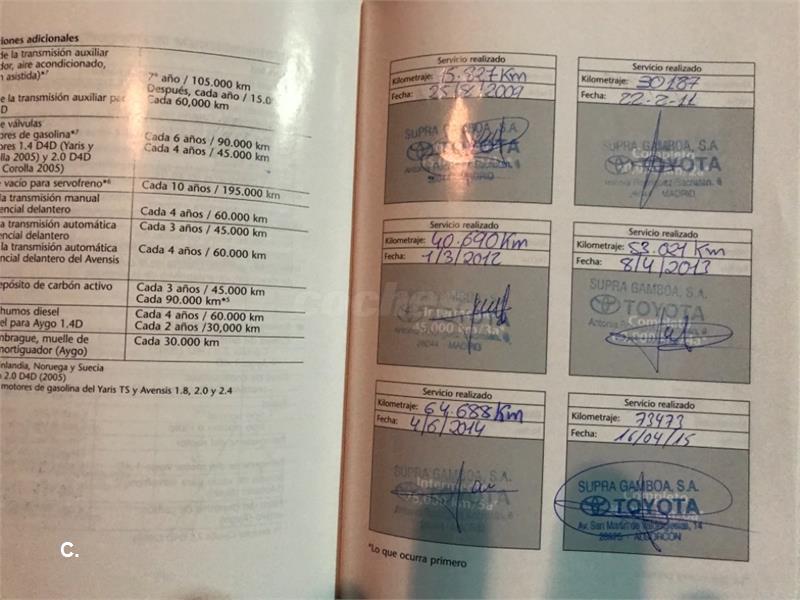 iones adicionales
de la transmisión auxiliar
dor, aire acondicionado,
n asistida)*⁷
7º año / 105.000 km
Después, cada año / 15.0
e la transmisión auxiliar pa
D
Cada 60,000 km
e válvulas
ores de gasolina*⁷
Cada 6 años / 90.000 km
ores 1.4 D4D (Yaris y
olla 2005) y 2.0 D4D
Corolla 2005)
Cada 4 años / 45.000 km
vacío para servofreno*⁶
Cada 10 años / 195.000 km
la transmisión manual
encial delantero
Cada 4 años / 60.000 km
a transmisión automática
encial delantero
Cada 3 años / 45.000 km
la transmisión automática
encial delantero del Avensis
Cada 4 años / 60.000 km
epósito de carbón activo
Cada 3 años / 45.000 km
Cada 90.000 km*⁵
humos diesel
Cada 4 años / 60.000 km
el para Aygo 1.4D
Cada 2 años /30,000 km
mbrague, muelle de
mortiguador (Aygo)
Cada 30.000 km
inlandia, Noruega y Suecia
2.0 D4D (2005)
motores de gasolina del Yaris TS y Avensis 1.8, 2.0 y 2.4
C.
Servicio realizado
Kilometraje: 15.827 Km
Fecha: 25/8/2009
SUPRA GAMBOA, S.A.
TOYOTA
MADRID
Servicio realizado
Kilometraje: 30187
Fecha: 22-2-11
SUPRA GAMBOA, S.A.
Completo
TOYOTA
MADRID
Servicio realizado
Kilometraje: 40.690 Km
Fecha: 1/3/2012
45,000 km/3a
28044 MADRID
Servicio realizado
Kilometraje: 53.021 Km
Fecha: 8/4/2013
SUPRA GAMBOA, S.A.
TOYOTA
Completo
Servicio realizado
Kilometraje: 64.688 Km
Fecha: 4/6/2014
SUPRA GAMBOA, S.A.
TOYOTA
75,000 km/5a
Servicio realizado
Kilometraje: 73473
Fecha: 16/04/15
SUPRA GAMBOA, S.A.
Completo
TOYOTA
Av. San Martín de Valdeiglesias, 14
28925 - ALCORCON
*Lo que ocurra primero